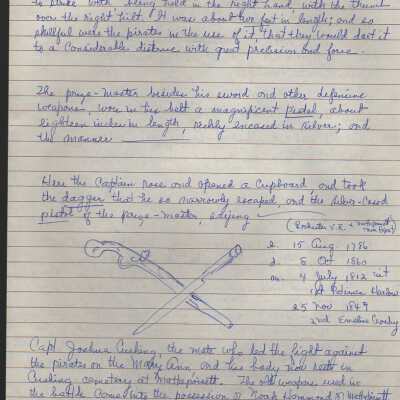 to strike with, being held in the right hand, with the thumb
over the right hilt. It was about two feet in length; and so
skillful were the pirates in the use of it, that they would dart it
to a considerable distance with great precision and force.
The prize-master besides his sword and other defensive
weapons, wore in his belt a magnificent pistol, about
eighteen inches in length, richly encased in silver; and
the manner
Here the Captain rose and opened a cupboard, and took
the dagger that he so narrowly escaped, and the silver-cased
pistol of the prize-master, saying
(Rochester V.R. +
b. 15 Aug. 1786
d. 8 Oct 1860
m. 4 July 1812 int
1st Polence Harlow
25 Nov 1849
2nd Emeline Crosby
Capt Joshua Cushing, the mate who led the fight against
the pirates on the Mary Ann and his body now rests in
Cushing cemetery at Mattapoisett. The old weapons used in
the battle came into the possession of Noah Hammond of Mattapoisett